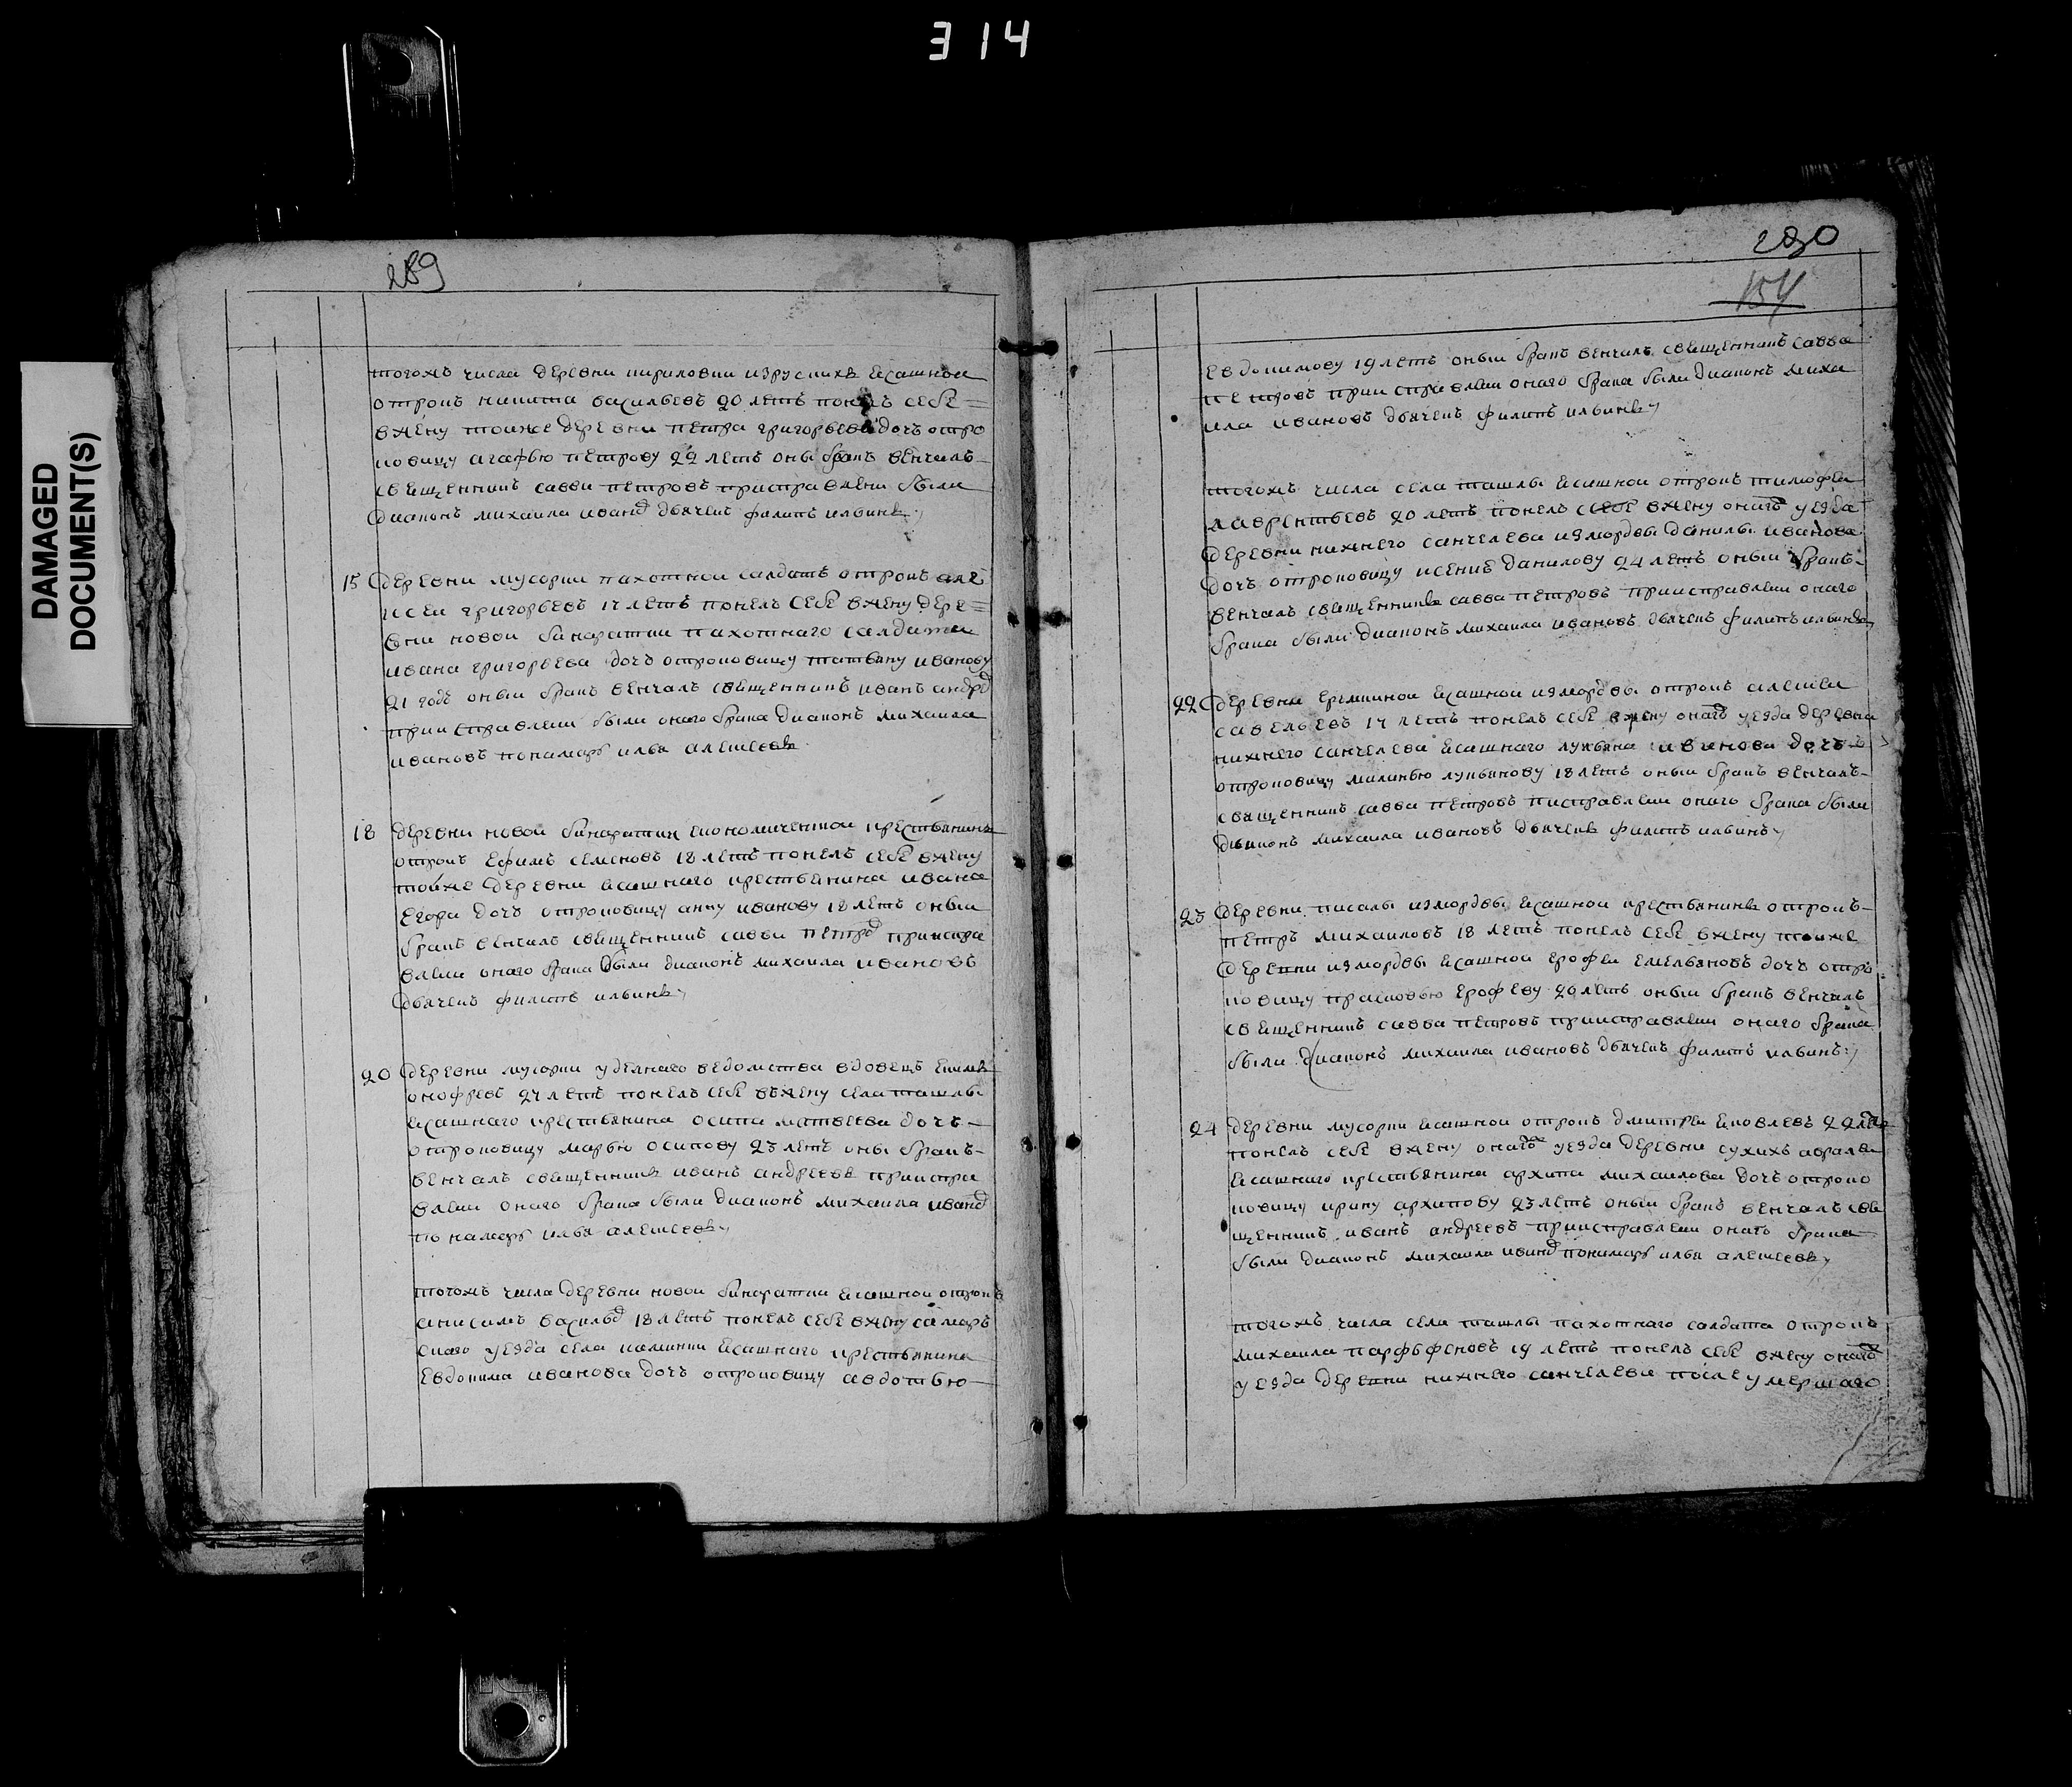 314
DAMAGED
DOCUMENT(S)
289
тогожъ числа деревни кириловки изрускихъ ясашнои
отрокъ никита васильевъ 20 летъ понелъ себе
вжену тоиже деревни петра григорьева дочъ отро
ковицу агафью петрову 22 летъ оны бракъ венчалъ
священникъ савва петровъ присправлени были
диаконъ михаила иванов дьячекъ филипъ ильинъ
15 деревни мусорки пахотнои салдатъ отрокъ але
ксеи григорьевъ 17 летъ понелъ себе вжену дере
вни новои бинаратки пахотнаго салдата
ивана григорьева дочъ отроковицу татьяну иванову
21 годъ оныи бракъ венчалъ священникъ иванъ андреев
при справлеии были онаго брака диаконъ михаила
ивановъ понамарь илья алексеевъ
18 деревни новои бинаратки економическои крестьянинъ
отрокъ ефимъ семеновъ 18 летъ понелъ себе вжену
тоиже деревни ясашнаго крестьянина ивана
егора дочъ отроковицу анну иванову 18 летъ оныи
бракъ венчалъ священникъ савва петров присправ
влеии онаго брака были диаконъ михаила ивановъ
дьячекъ филипъ ильинъ
20 деревни мусорки уделнаго ведомства вдовецъ екимъ
онофревъ 27 летъ понелъ себе вжену села ташлы
ясашнаго крестьянина осипа матвеева дочъ
отроковицу марью осипову 23 летъ оны бракъ
венчалъ священникъ иванъ андреевъ приспра
влеии онаго брака были диаконъ михаила иванов
понамарь илья алексеевъ
тогожъ числа деревни новои бинаратки ясашнои отрокъ
анисимъ васильев 18 летъ понелъ себе вжену самаръ
скаго уезда села ясашнаго крестьянина
евдокима иванова дочъ отроковицу авдотью
290
154
евдокимову 19 летъ оныи бракъ венчалъ священникъ савва
петровъ присправлеии онаго брака были диаконъ миха
ила ивановъ дьячекъ филипъ ильинъ
тогожъ числа села ташлы ясашнои отрокъ тимофеи
лаврентьевъ 20 летъ понелъ себе вжену онагож уезда
деревни нижнего санчелеева измордвы данилы иванова
дочъ отроковицу ксению данилову 24 летъ оныи бракъ
венчалъ священникъ савва петровъ присправлеии онаго
брака были диаконъ михаила ивановъ дьячекъ филипъ ильинъ
22 деревни еремкинои ясашнои измордвы отрокъ алексеи
савельевъ 17 летъ понелъ себе вжену онагож уезда деревни
нижнего санчелеева ясашнаго лукьяна иванова дочъ
отроковицу маланью лукьянову 18 летъ оныи бракъ венчалъ
священникъ савва петровъ писправлеии онаго брака были
дьяконъ михаила ивановъ дьячекъ филипъ ильинъ
23 деревни пискалы измордвы ясашнои крестьянинъ отрокъ
петръ михаиловъ 18 летъ понелъ себе вжену тоиже
деревни измордвы ясашнои ерофеи емельяновъ дочъ отро
ковицу прасковью ерофеву 20 летъ оныи бракъ венчалъ
священникъ савва петровъ присправлеии онаго брака
были диаконъ михаила ивановъ дьячекъ филипъ ильинъ
24 деревни мусорки ясашнои отрокъ дмитреи яковлевъ 22 летъ
понелъ себе вжену онагож уезда деревни сухихъ авралеи
ясашнаго крестьянина архипа михаилова дочъ отроко
ковицу ирину архипову 23 летъ оныи бракъ венчалъ свя
щенникъ иванъ андреевъ присправлеии онаго брака
были диаконъ михаила иванов понамарь илья алексеевъ
тогожъ числа села ташлы пахотнаго салдата отрокъ
михаила парфеновъ 19 летъ понелъ себе вжену онагож
уезда деревни нижнего санчелеева после умершаго